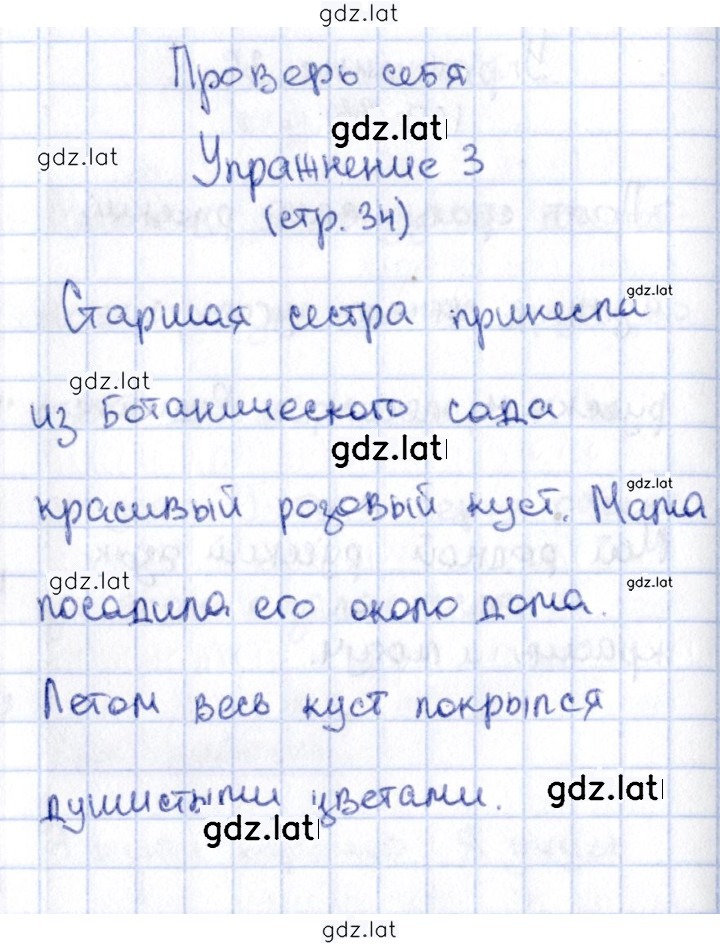 gdz.lat
Проверь себя
gdz.lat
gdz.lat
Упражнение 3
(стр. 34)
gdz.lat
Старшая сестра принесла
gdz.lat
из Ботанического сада
gdz.lat
gdz.lat
красивый розовый куст. Мама
gdz.lat
gdz.lat
посадила его около дома.
Летом весь куст покрылся
gdz.lat
душистыми цветами.
gdz.lat
gdz.lat